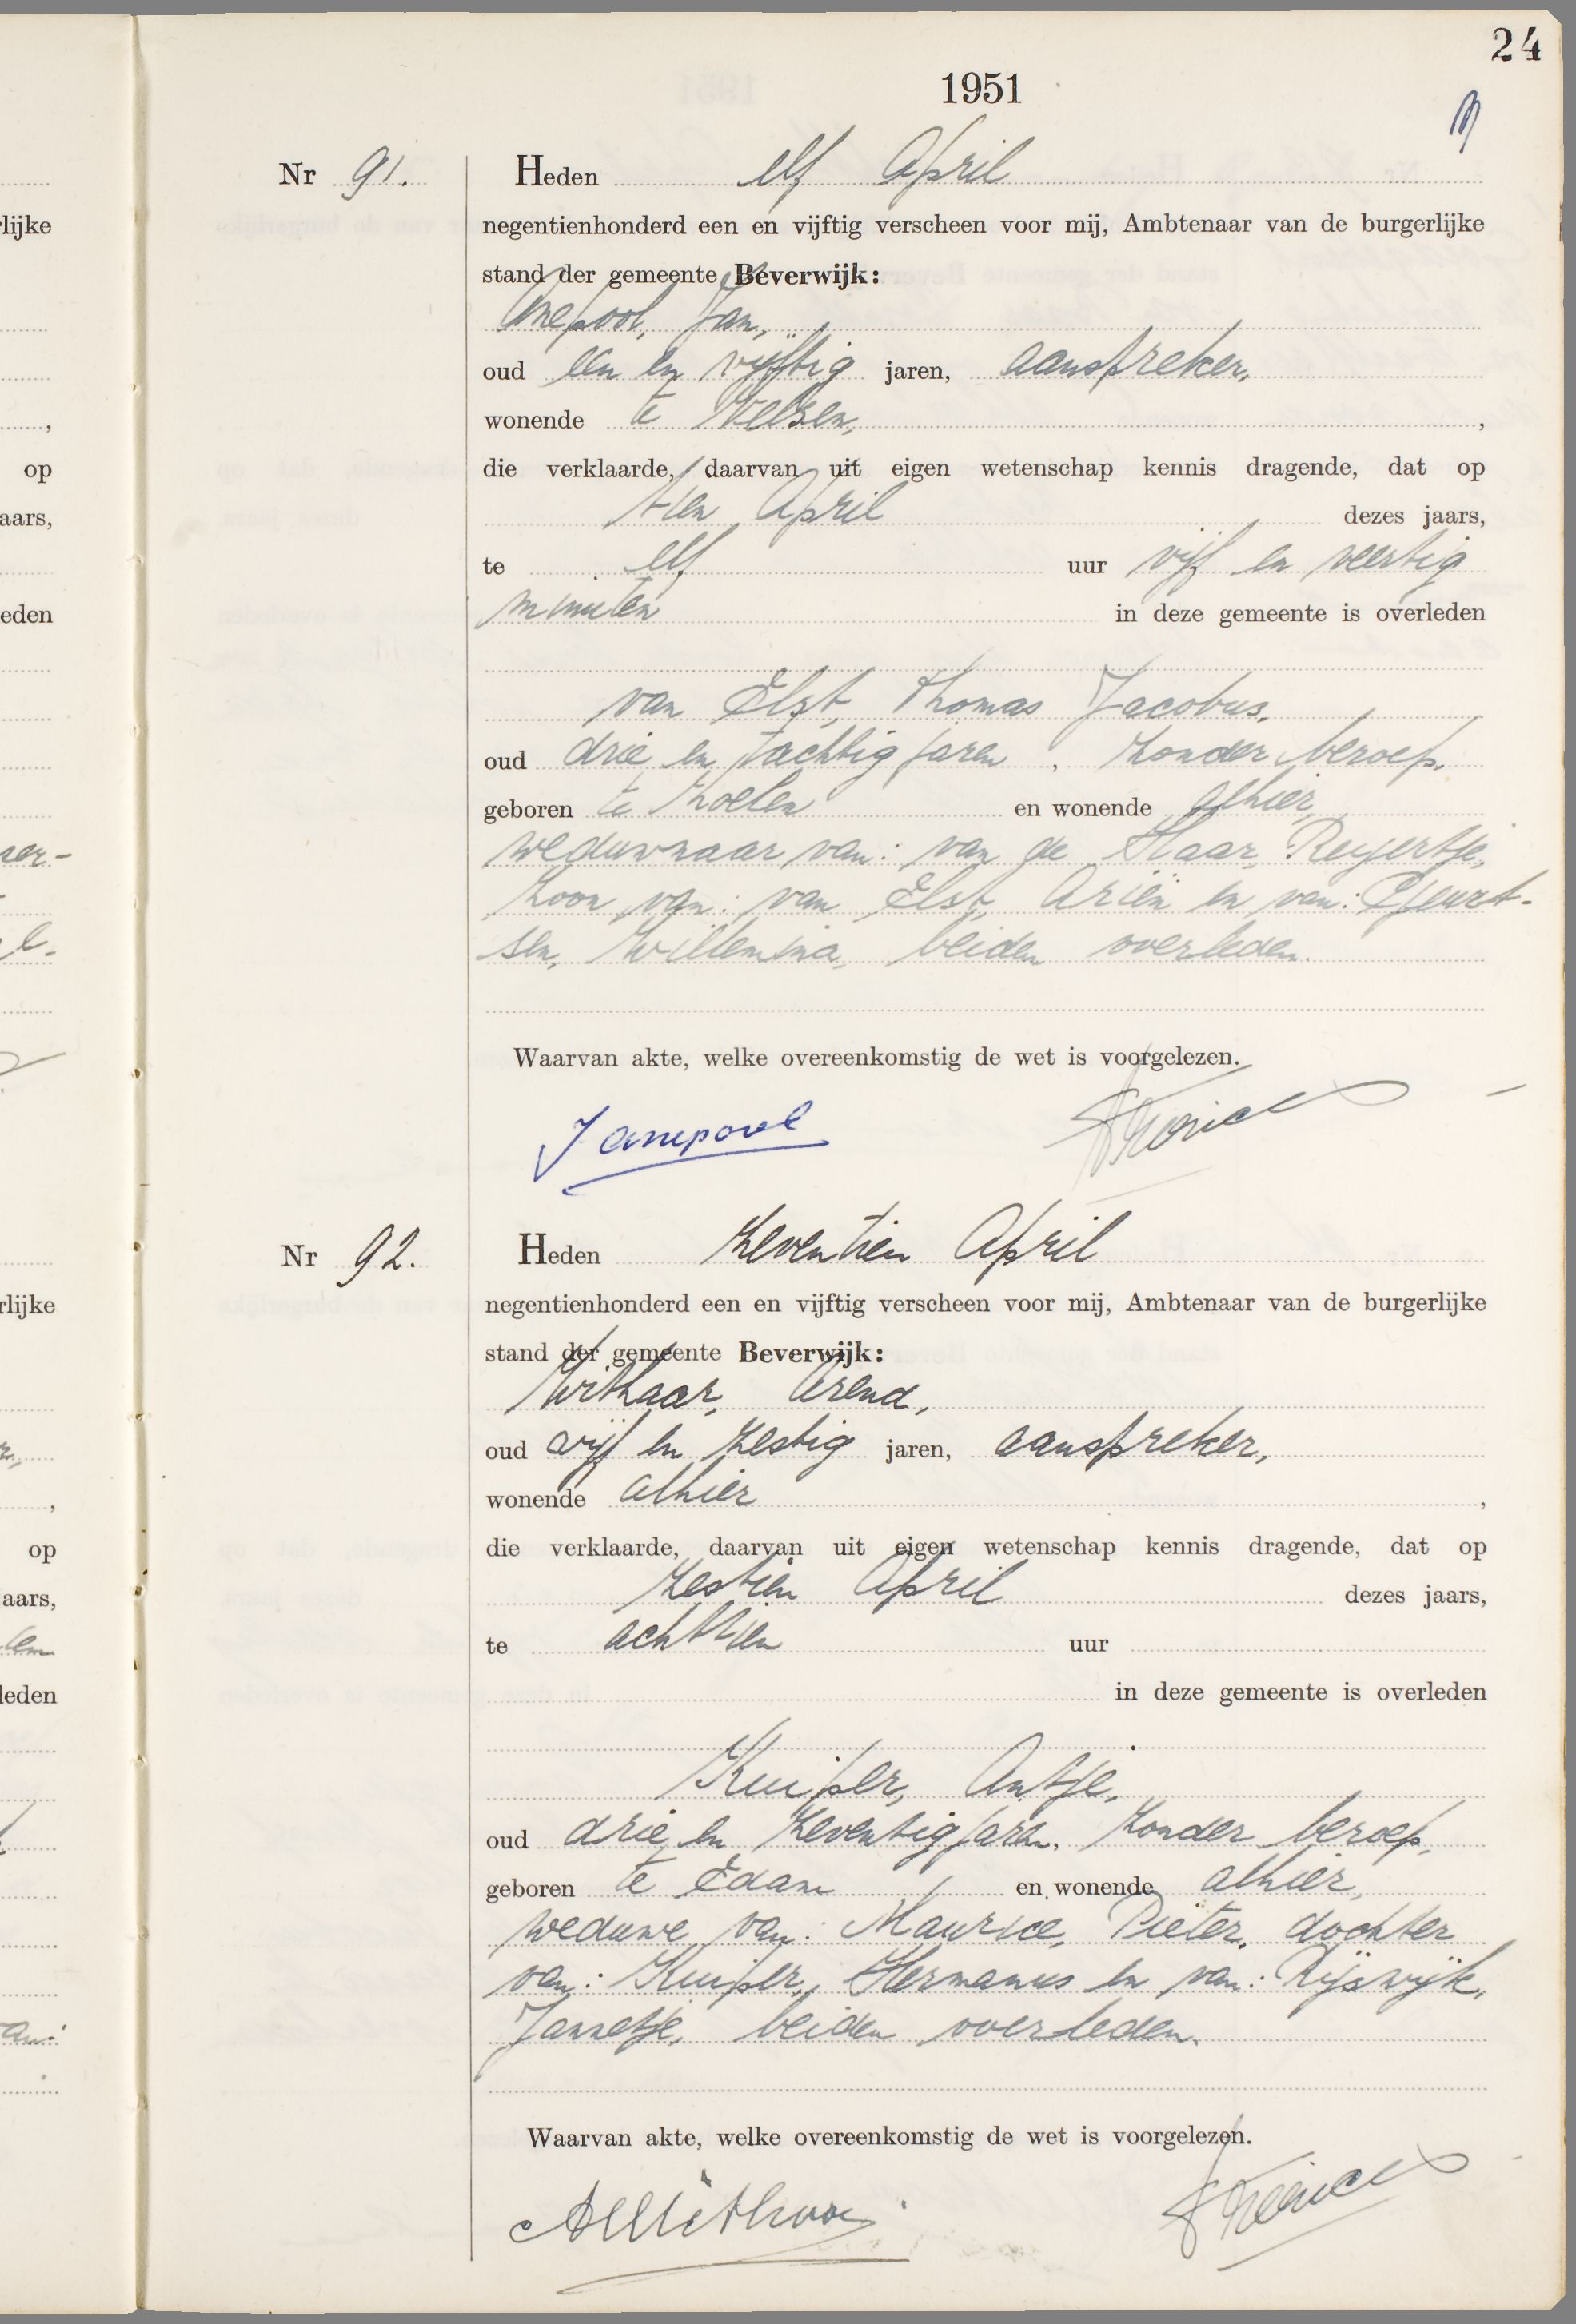 24
1951
Nr 91.
Heden elf April
negentienhonderd een en vijftig verscheen voor mij, Ambtenaar van de burgerlijke
stand der gemeente Beverwijk:
Anepool, Jan,
oud een en vijftig jaren, aanspreker,
wonende te Velsen,
die verklaarde, daarvan uit eigen wetenschap kennis dragende, dat op
tien April dezes jaars,
te elf uur vijf en veertig
minuten in deze gemeente is overleden
van Elst, Thomas Jacobus,
oud drie en tachtig jaren, zonder beroep,
geboren te Zoelen en wonende alhier,
weduwnaar van: van de Haar, Reijertje,
zoon van: van Elst, Ariën en van: Geurt-
sen, Willemina, beiden overleden.
Waarvan akte, welke overeenkomstig de wet is voorgelezen.
J Anepool
Nr 92.
Heden zeventien April
negentienhonderd een en vijftig verscheen voor mij, Ambtenaar van de burgerlijke
stand der gemeente Beverwijk:
Withaar, Arend,
oud vijf en zestig jaren, aanspreker,
wonende alhier,
die verklaarde, daarvan uit eigen wetenschap kennis dragende, dat op
zestien April dezes jaars,
te achttien uur
in deze gemeente is overleden
Kuiper, Antje,
oud drie en zeventig jaren, zonder beroep,
geboren te Edam en wonende alhier,
weduwe van: Maurice, Pieter, dochter
van: Kuiper, Hermanus en van: Rijswijk,
Jannetje, beiden overleden.
Waarvan akte, welke overeenkomstig de wet is voorgelezen.
A Withaar